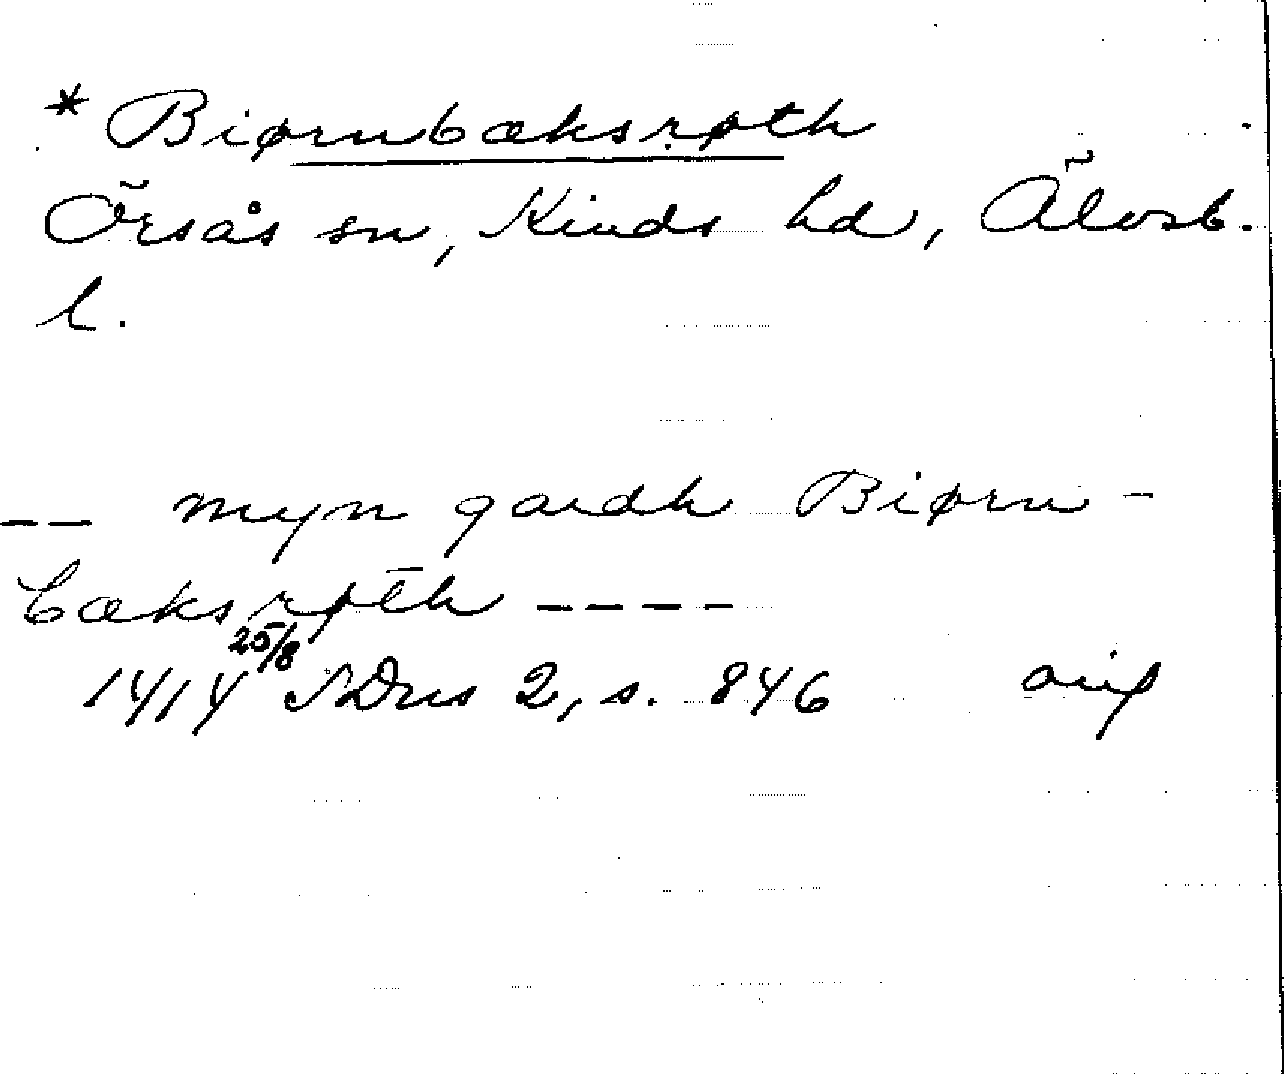 * Biørnbæksrøth
Örsås sn, Kinds hd, Älvsb.
l.
-- myn gardh Biørn-
bæksrøth ----
1414 25/8 SDns 2, s. 846